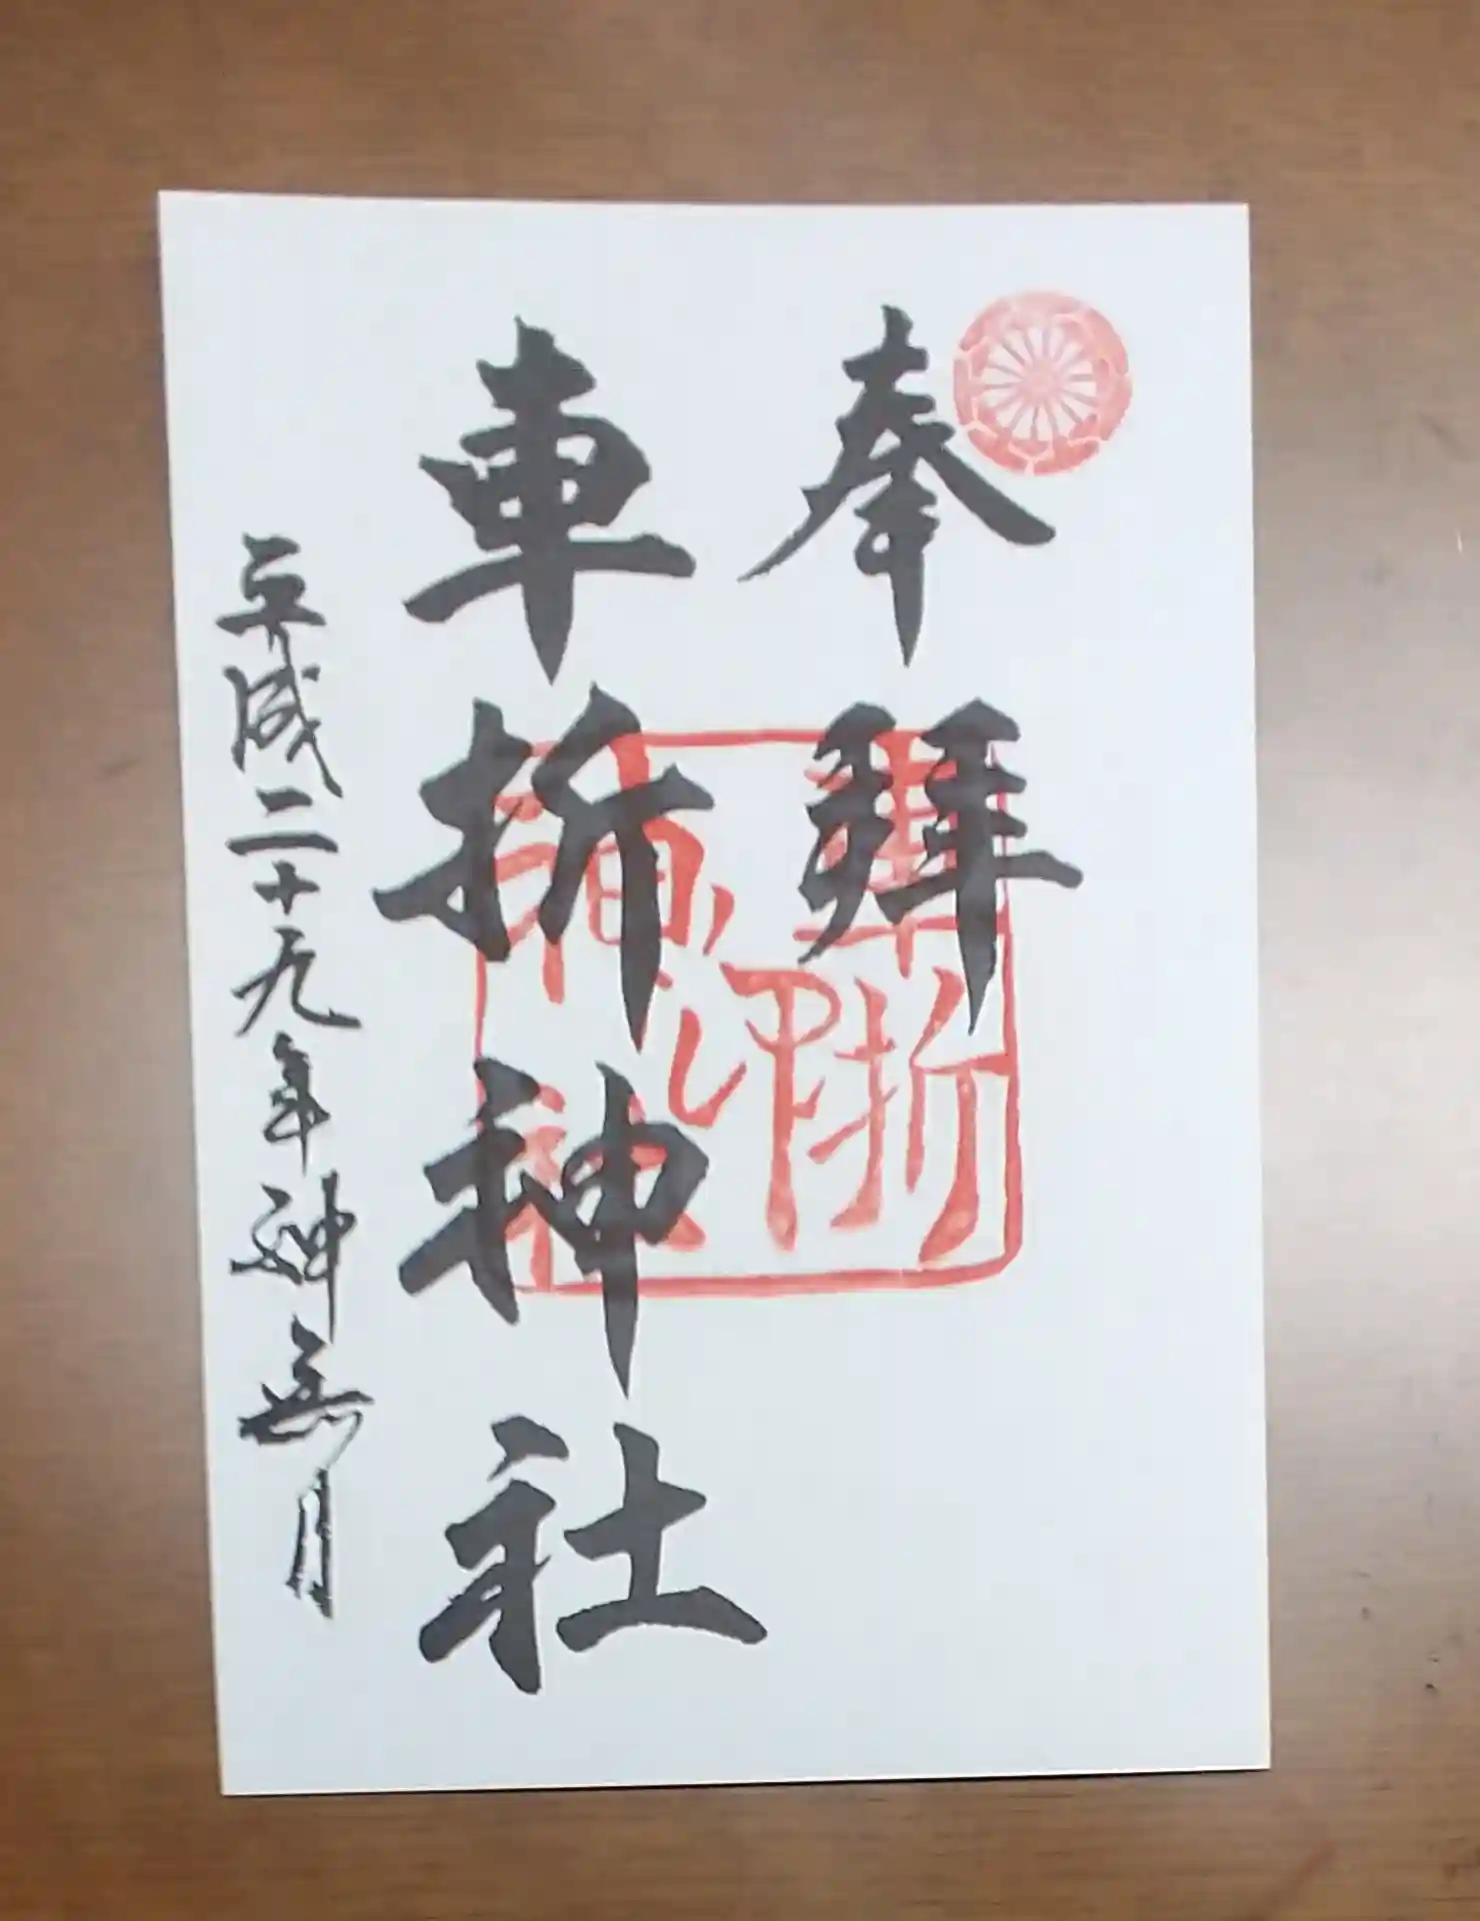 奉拜
車折神社
平成二十九年神無月
車折
神社